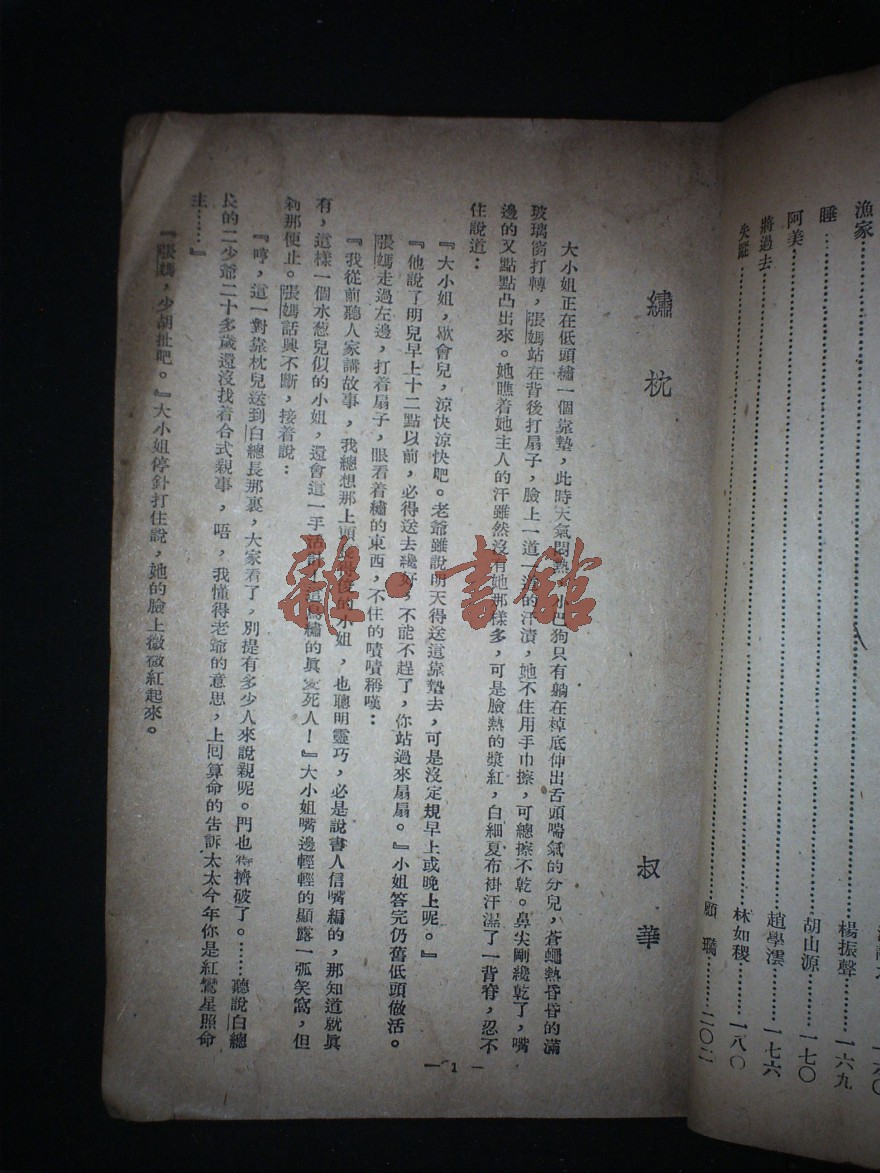 漁家……楊振聲……一六九
睡……胡山源……一七〇
阿美……趙學濡……一七六
將過去……林如稷……一八〇
失蹤……顧𤩽……二〇二
繡枕
叔華
大小姐正在低頭繡一個靠墊,此時天氣悶熱,小巴狗只有躺在棹底伸出舌頭喘氣的分兒,蒼蠅熱昏昏的滿
玻璃窗打轉,張媽站在背後打扇子,臉上一道一道的汗漬,她不住用手巾擦,可總擦不乾。鼻尖剛纔乾了,嘴
邊的又點點凸出來。她瞧着她主人的汗雖然沒有她那樣多,可是臉熱的漿紅,白細夏布褂汗濕了一背脊,忍不
住說道:
『大小姐,歇會兒,涼快涼快吧。老爺雖說明天得送這靠墊去,可是沒定規早上或晚上呢。』
『他說了明兒早上十二點以前,必得送去纔好,不能不趕了,你站過來扇扇。』小姐答完仍舊低頭做活。
張媽走過左邊,打着扇子,眼看着繡的東西,不住的嘖嘖稱嘆:
『我從前聽人家講故事,我總想那上頭的小姐,也聰明靈巧,必是說書人信嘴編的,那知道就眞
有,這樣一個水葱兒似的小姐,還會這一手活計!這鳥繡的眞愛死人!』大小姐嘴邊輕輕的顯露一弧笑窩,但
刹那便止。張媽話興不斷,接着說:
『哼,這一對靠枕兒送到白總長那裏,大家看了,別提有多少人來說親呢。門也得擠破了。……聽說白總
長的二少爺二十多歲還沒找着合式親事,唔,我懂得老爺的意思,上回算命的告訴太太今年你是紅鸞星照命
主……』
『張媽,少胡扯吧。』大小姐停針打住說,她的臉上微微紅起來。
— 1 —
雜·書館